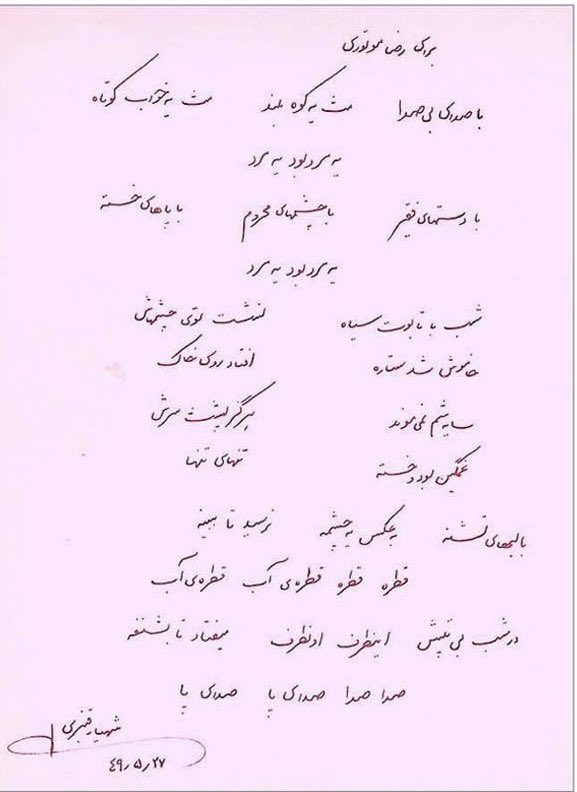 برای رضا موتوری
با صدای بی صدا مث یه کوه بلند مث یه خواب کوتاه
یه مرد بود یه مرد
با دستهای فقیر با چشمهای محروم با پاهای خسته
یه مرد بود یه مرد
شب با تابوت سیاه نشست توی چشمهاش
خاموش شد ستاره افتاد روی خاک
سایه شم نمی موند هرگز پشت سرش
غمگین بود و خسته تنهای تنها
با لبهای تشنه به عکس یه چشمه نرسید تا ببینه
قطره قطره قطره ی آب قطره ی آب
در شب بی تپش اینطرف اونطرف میفتاد تا بشنفه
صدا صدا صدای پا صدای پا
شهیار قنبری
۴۹٫۵٫۲۷